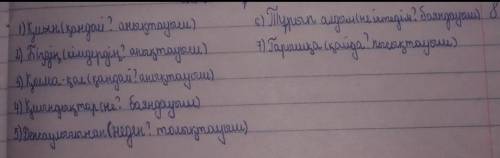 1) Қиын (қандай? анықтауыш)
2) Біздің (кімдердің? анықтауыш)
3) Қыма-қал (қандай? анықтауыш)
4) Қиындықтар (не? баяндауыш)
5) (неден? толықтауыш)
6) Тұрып алдым (не істедім? баяндауыш)
7) Ғарышқа (қайда? пысықтауыш)